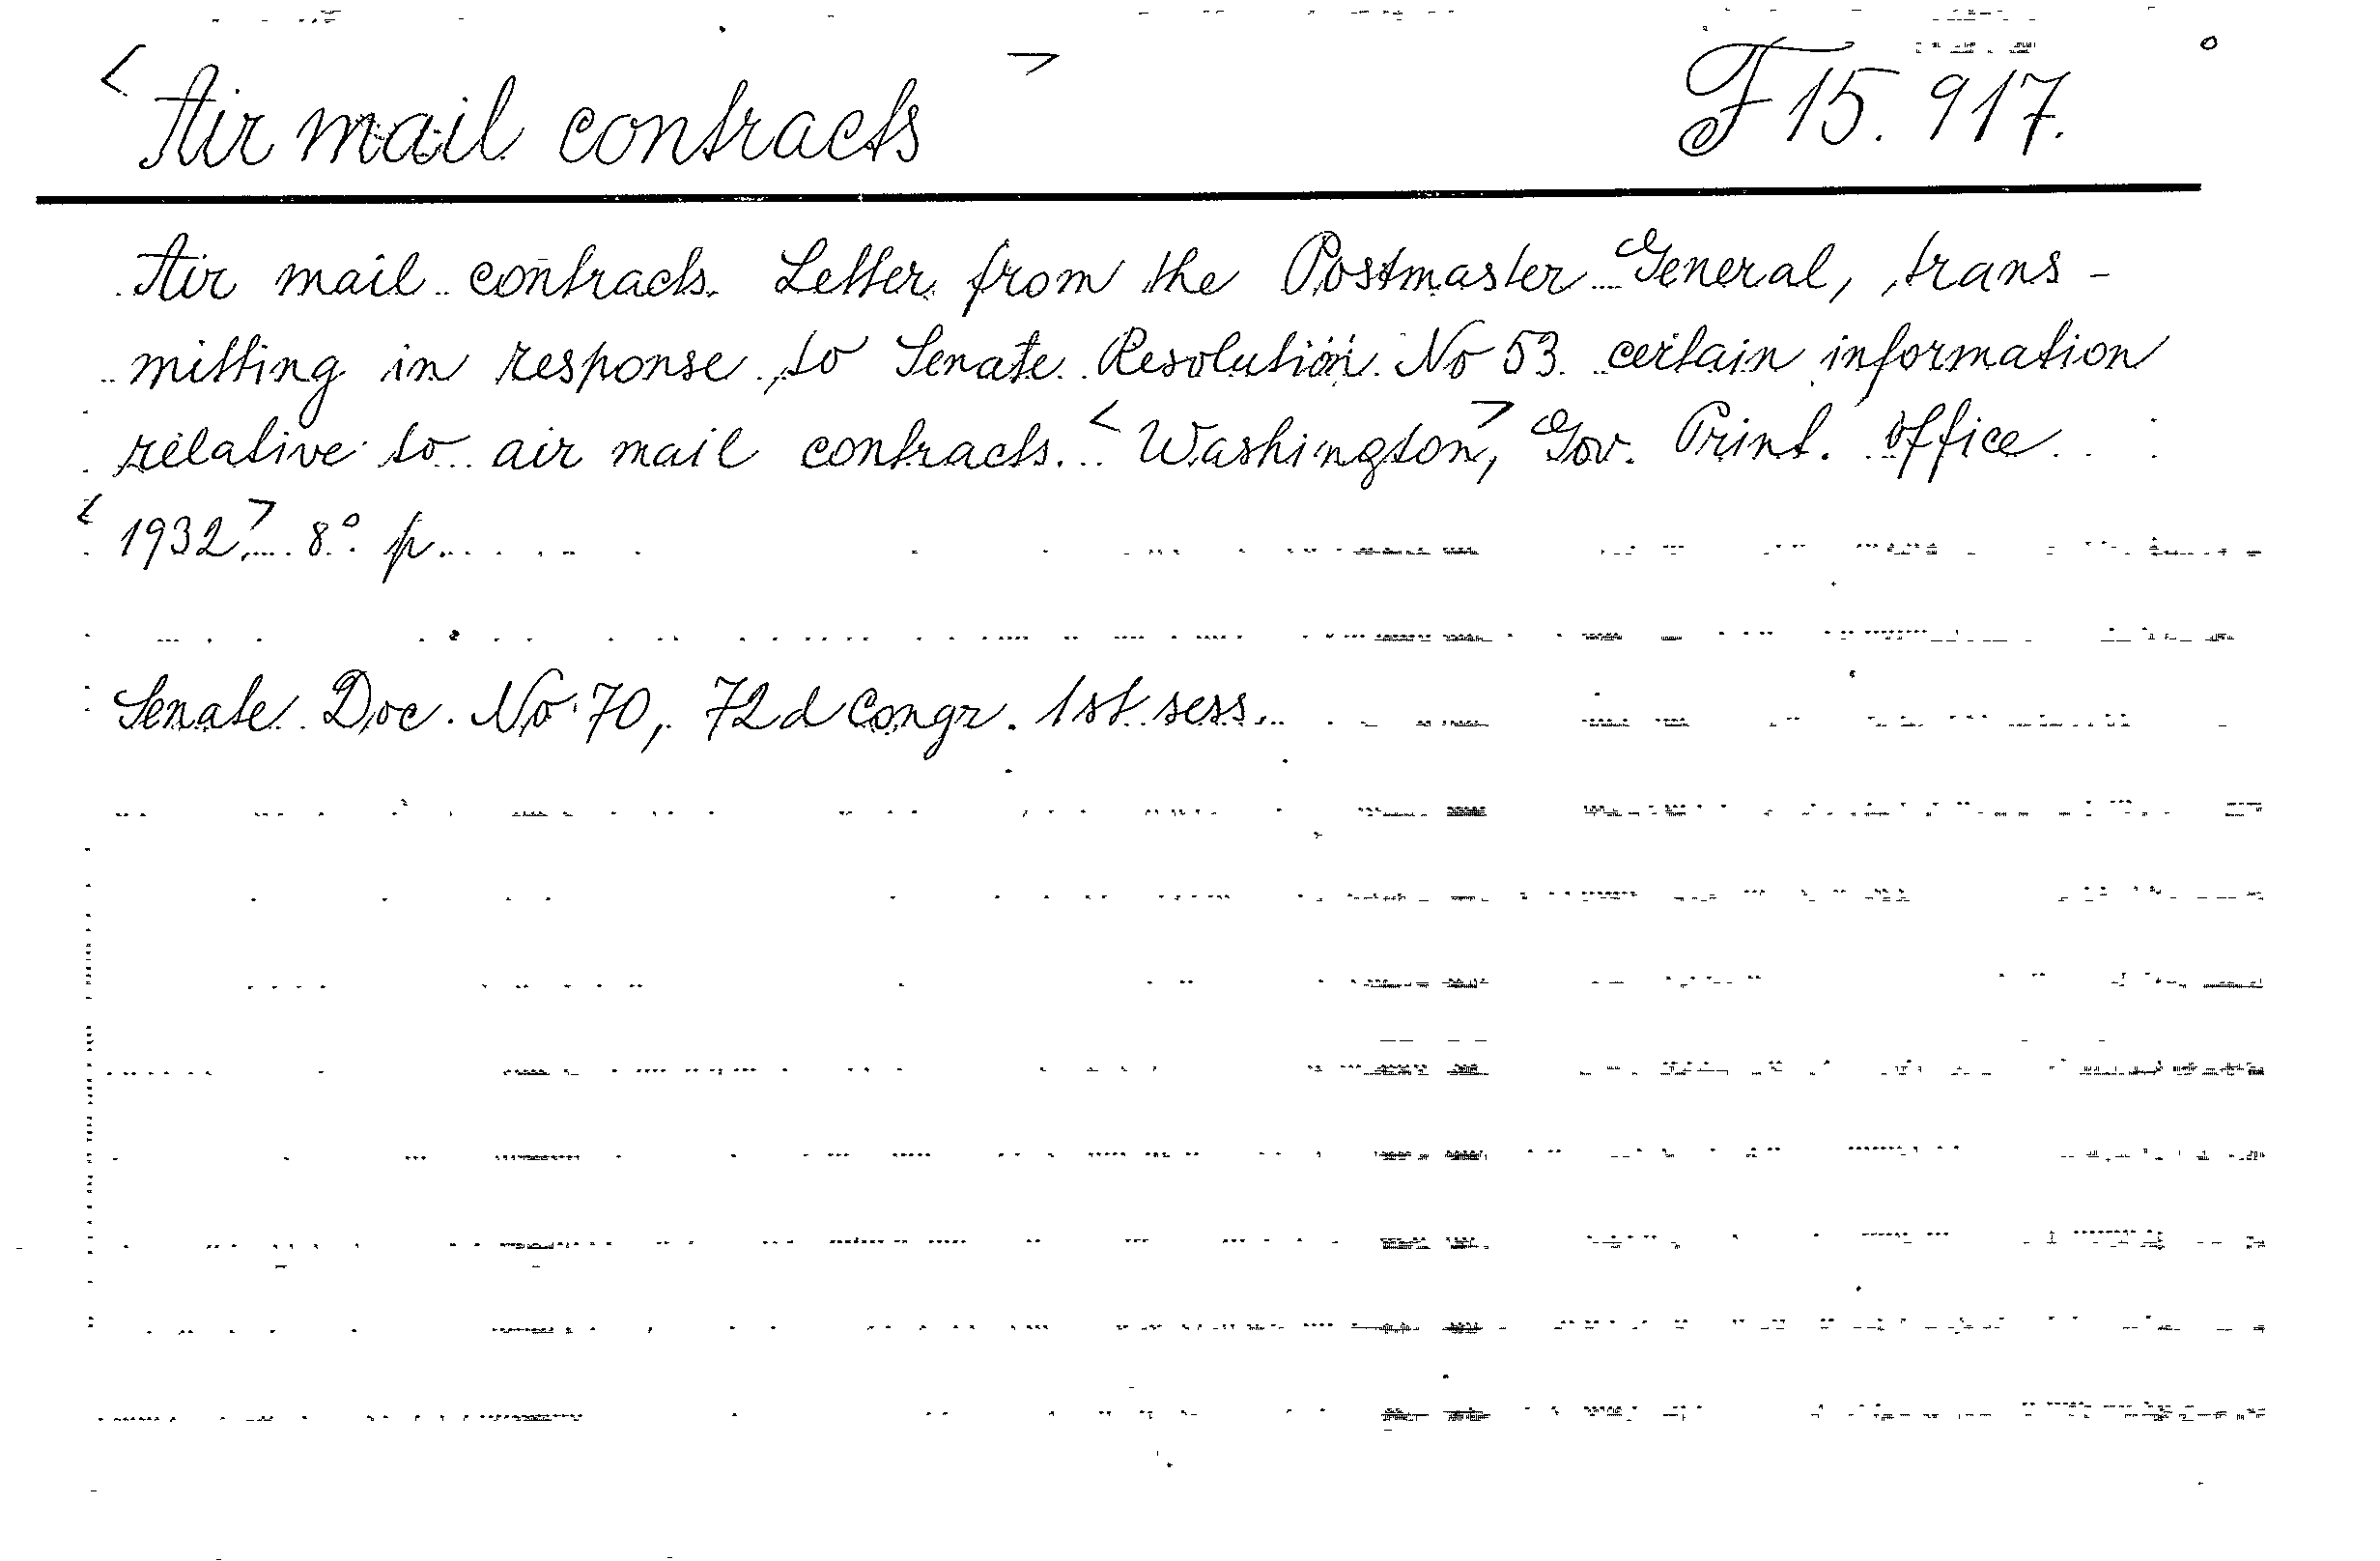 <Air mail contracts> F 15. 917.
Air mail contracts. Letter from the Postmaster General, trans-
mitting in response to Senate Resolution No 53 certain information
relative to air mail contracts. <Washington>, Gov. Print. office
<1932>. 8° p.
Senate Doc. No 70, 72d Congr. 1st sess.